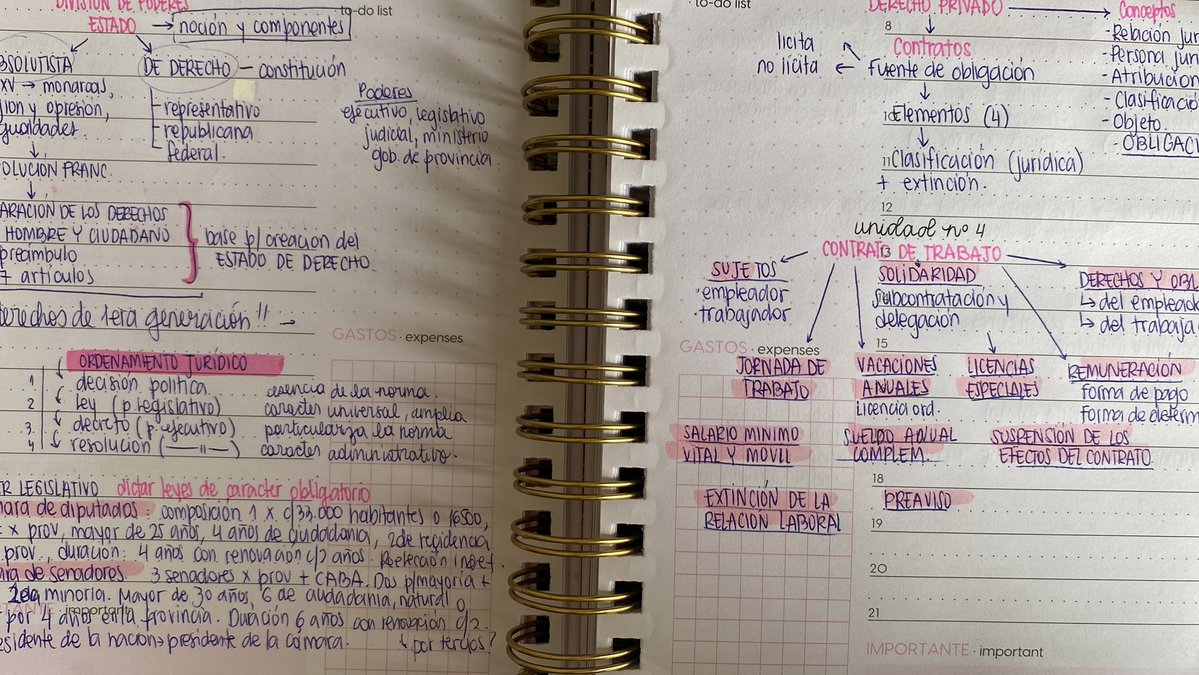 DIVISIÓN DE PODERES
to-do list
ESTADO → noción y componentes
DE DERECHO - constitución
XV → monarcas,
y opresión,
representativo
republicana
federal.
Poderes
ejecutivo, legislativo
judicial, ministerio
gob. de provincia
FRANC.
DE LOS DERECHOS
HOMBRE Y CIUDADANO
preámbulo
artículos
base p/ creacion del
ESTADO DE DERECHO.
de 1era generación!! -
GASTOS · expenses
ORDENAMIENTO JURÍDICO
1. decisión política
2. ley (p legislativo)
3. decreto (p. ejecutivo)
4. resolución (—"—)
esencia de la norma.
caracter universal, amplia
particulariza la norma
caracter administrativo.
LEGISLATIVO dictar leyes de carácter obligatorio
de diputados: composición 1 x c/33.000 habitantes o 16500,
x prov, mayor de 25 años, 4 años de ciudadanía, 2 de residencia
prov., duración: 4 años con renovación c/2 años. Reelección
de senadores. 3 senadores x prov + CABA. Dos p/mayoria +
minoria. Mayor de 30 años, 6 de ciudadania, natural o
· important
por 4 años en la provincia. Duración 6 años con renovacion c/2.
de la nación → presidente de la cámara.
↳ por tercios?
· to-do list
DERECHO PRIVADO → Conceptos
8
licita
no licita
Contratos
Fuente de obligación
Elementos (4)
11 Clasificación (jurídica)
+ extinción.
- Relación
- Persona
- Atribucion
-
- Objeto.
-
12
unidad nº 4
13
CONTRATO DE TRABAJO
SUJETOS
· empleador
· trabajador
SOLIDARIDAD
subcontratación y
delegación
DERECHOS Y
↳ del
↳ del
15
GASTOS · expenses
JORNADA DE
TRABAJO
VACACIONES
ANUALES
Licencia ord.
LICENCIAS
ESPECIALES
REMUNERACIÓN
forma de pago
forma de
SALARIO MINIMO
VITAL Y MOVIL
SUELDO ANUAL
COMPLEM.
SUSPENSIÓN DE LOS
EFECTOS DEL CONTRATO
18
EXTINCIÓN DE LA
RELACIÓN LABORAL
PREAVISO
19
20
21
IMPORTANTE · important